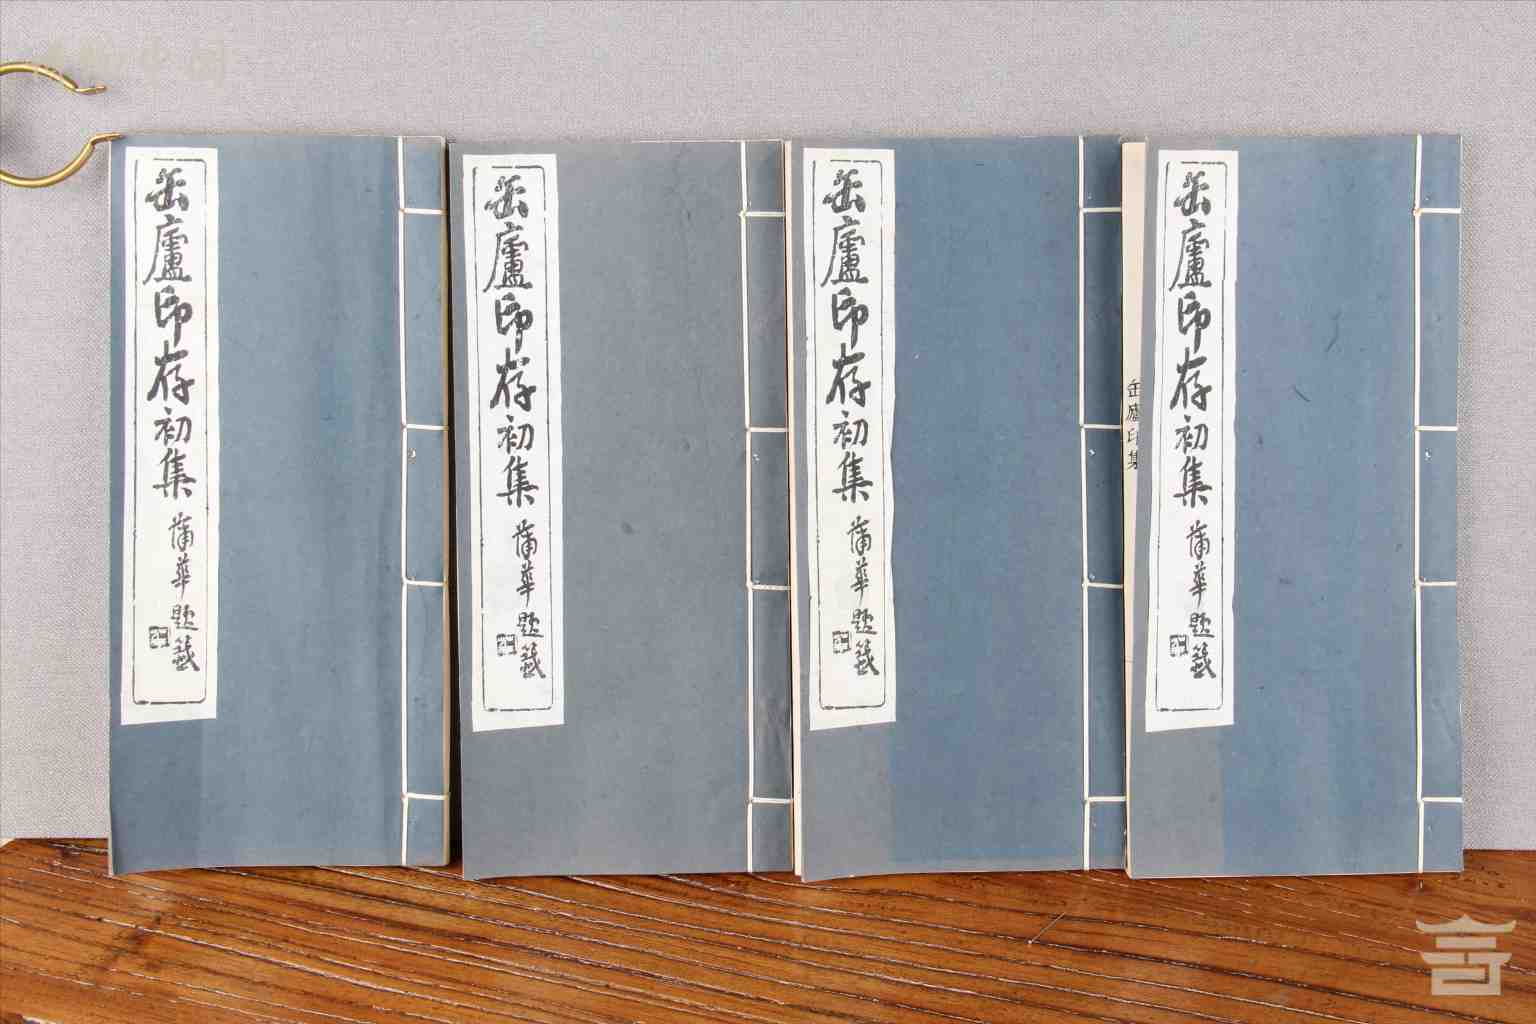 缶廬印存初集
蒲華題籤
缶廬印存初集
蒲華題籤
缶廬印存初集
蒲華題籤
缶廬印集
缶廬印存初集
蒲華題籤